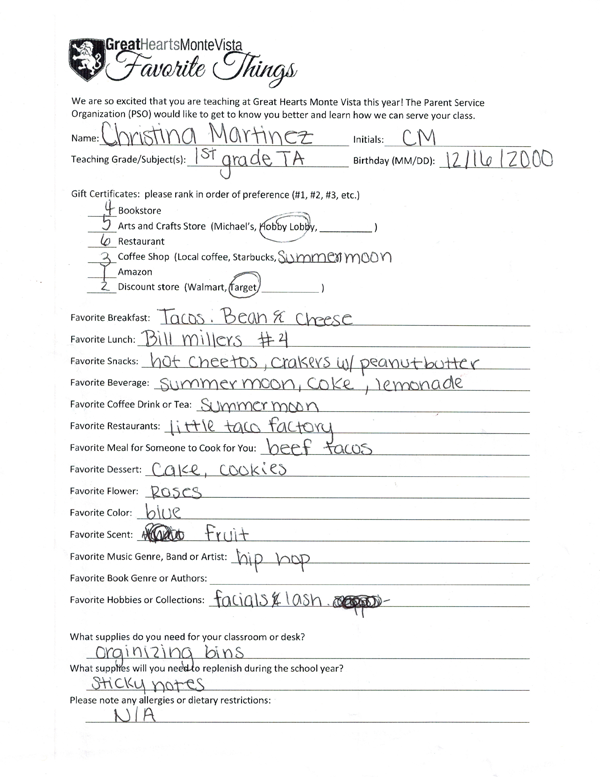 GreatHeartsMonteVista
Favorite Things
We are so excited that you are teaching at Great Hearts Monte Vista this year! The Parent Service
Organization (PSO) would like to get to know you better and learn how we can serve your class.
Name: Christina Martinez Initials: CM
Teaching Grade/Subject(s): 1st grade TA Birthday (MM/DD): 12/16/2000
Gift Certificates: please rank in order of preference (#1, #2, #3, etc.)
4 Bookstore
5 Arts and Crafts Store (Michael's, Hobby Lobby, __________ )
6 Restaurant
3 Coffee Shop (Local coffee, Starbucks, Summermoon
1 Amazon
2 Discount store (Walmart, Target, __________ )
Favorite Breakfast: Tacos. Bean & Cheese
Favorite Lunch: Bill millers #4
Favorite Snacks: hot cheetos, crakers w/ peanutbutter
Favorite Beverage: Summermoon, Coke, lemonade
Favorite Coffee Drink or Tea: Summermoon
Favorite Restaurants: little taco factory
Favorite Meal for Someone to Cook for You: beef tacos
Favorite Dessert: Cake, cookies
Favorite Flower: Roses
Favorite Color: blue
Favorite Scent: fruit
Favorite Music Genre, Band or Artist: hip hop
Favorite Book Genre or Authors:
Favorite Hobbies or Collections: facials & lash
What supplies do you need for your classroom or desk?
orginizing bins
What supplies will you need to replenish during the school year?
Sticky notes
Please note any allergies or dietary restrictions:
N/A